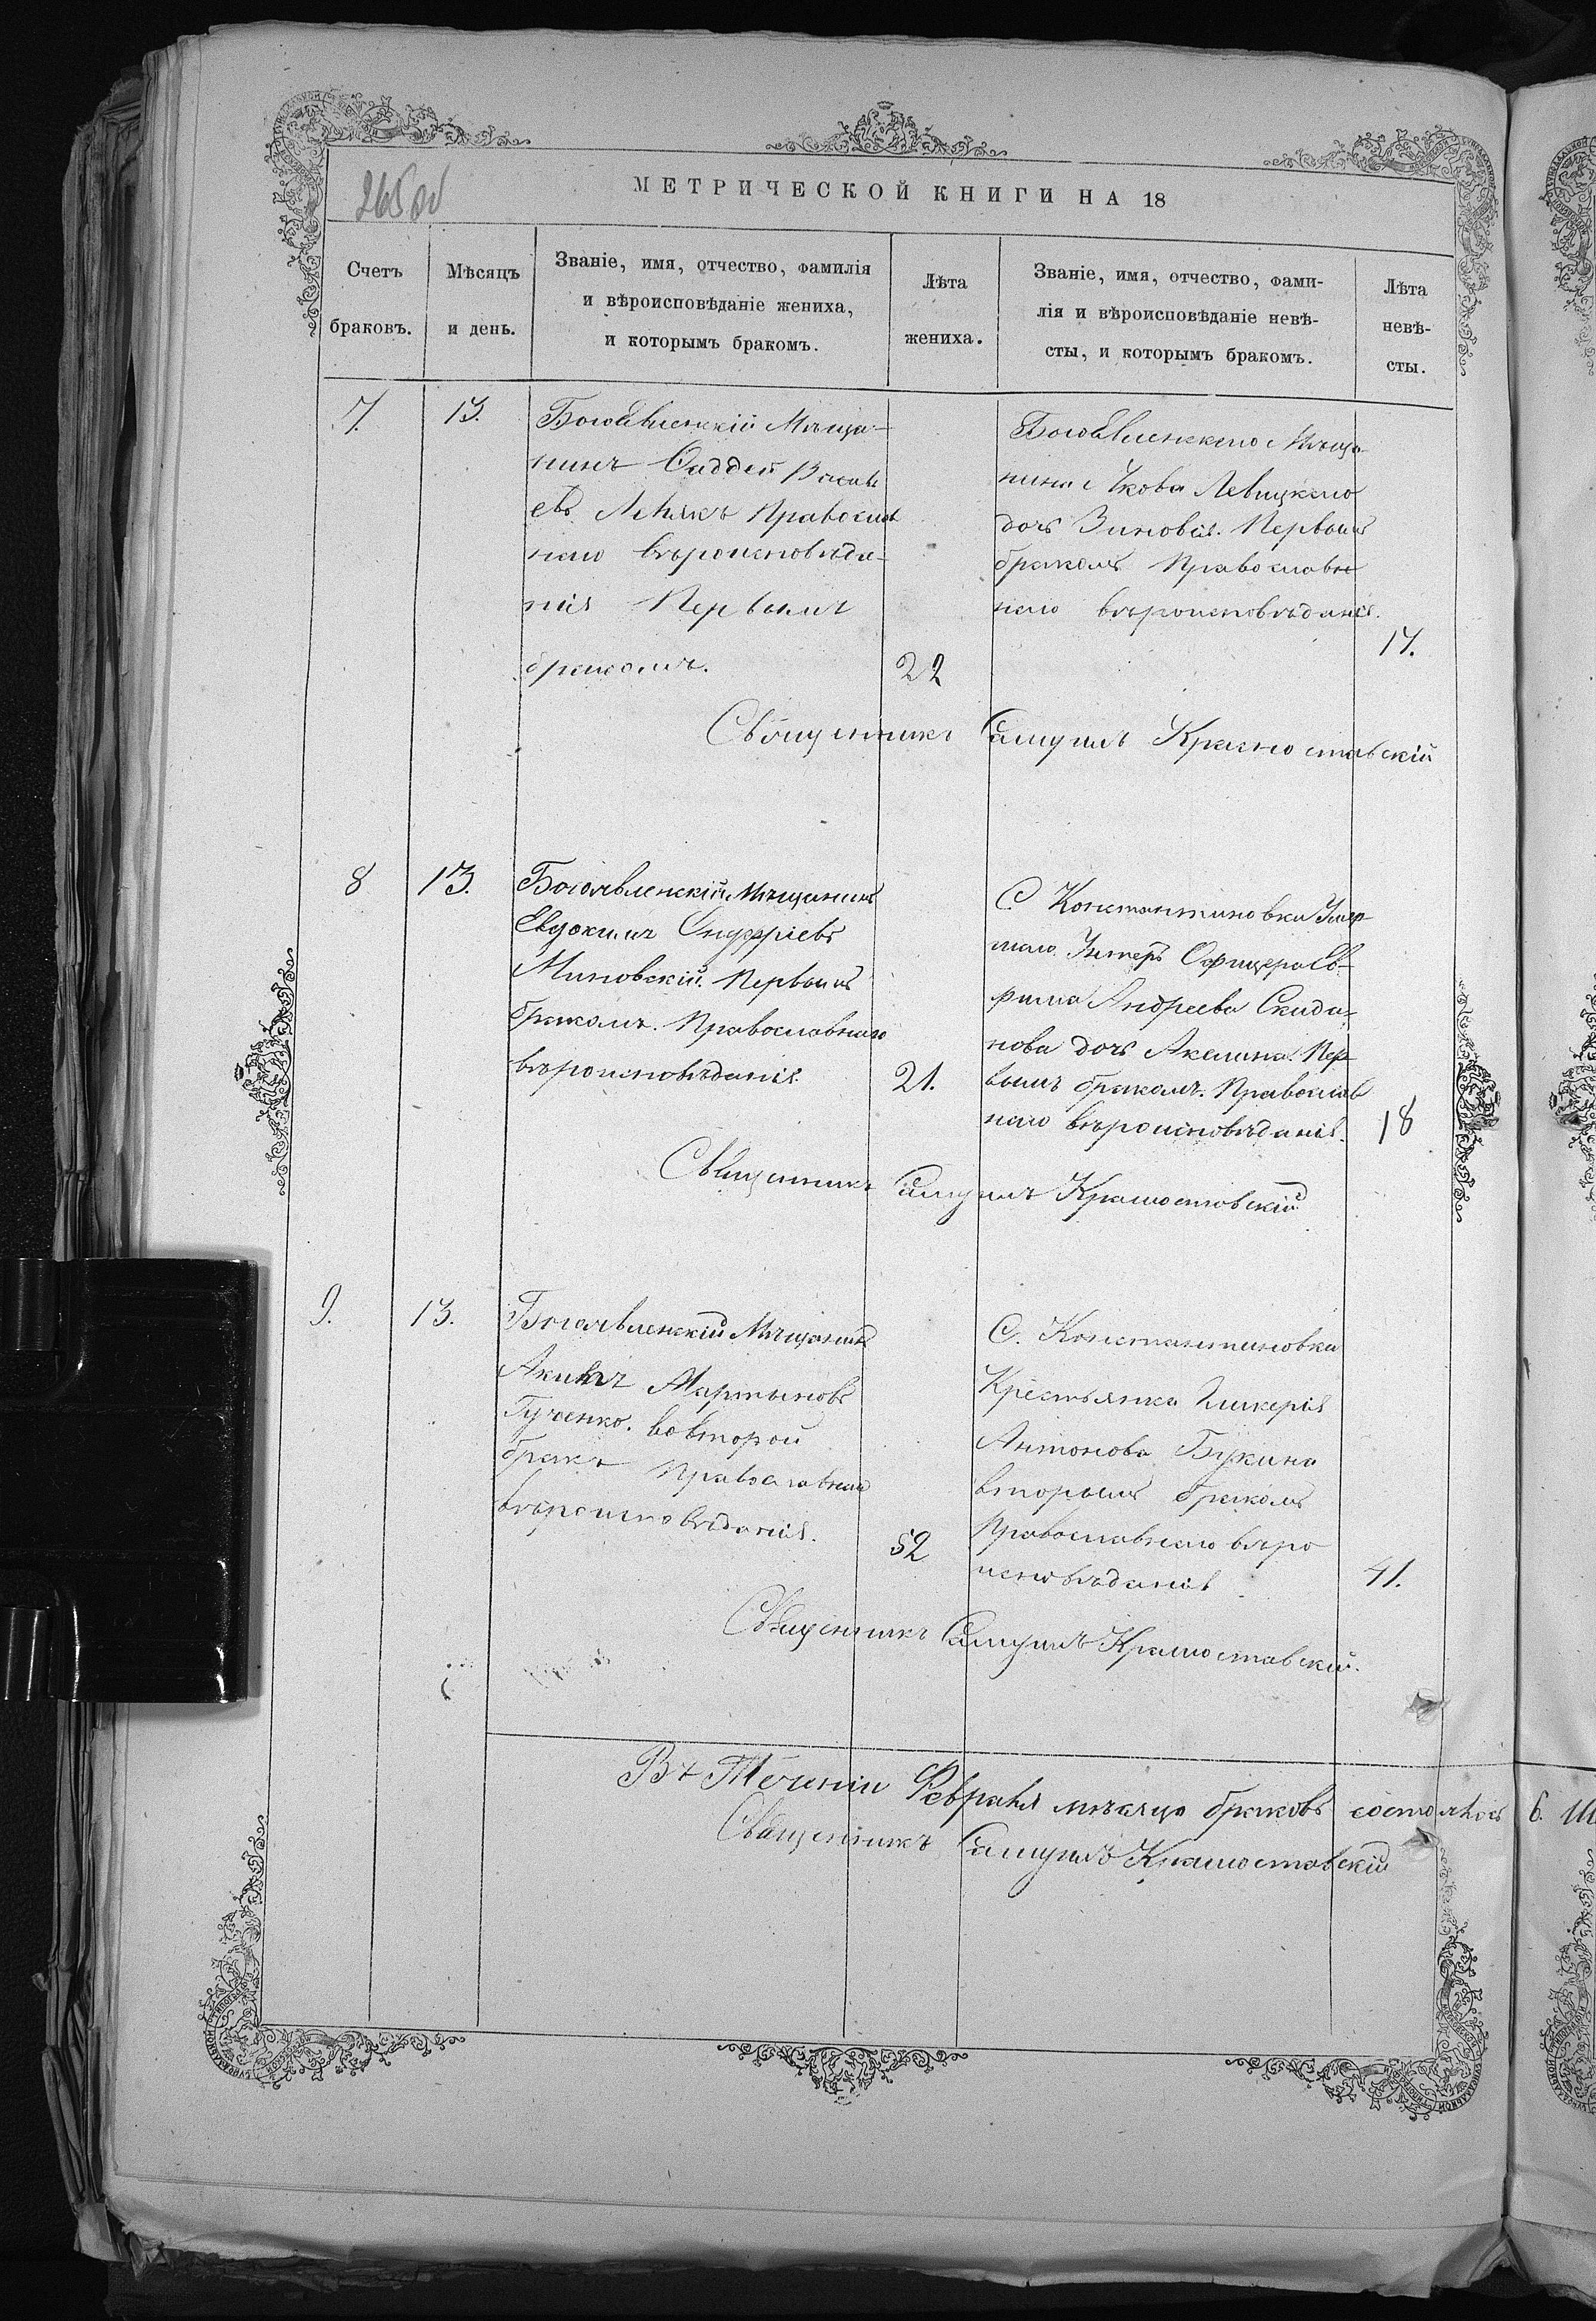 265 об
МЕТРИЧЕСКОЙ КНИГИ НА 18
Счетъ браковъ.
Мѣсяцъ и день.
Званіе, имя, отчество, фамилія
и вѣроисповѣданіе жениха,
и которымъ бракомъ.
Лѣта жениха.
Званіе, имя, отчество, фами-
лія и вѣроисповѣданіе невѣ-
сты, и которымъ бракомъ.
Лѣта невѣ-
сты.
7.
13.
Богоявленскій Мѣща-
нинъ Фаддей Василь
евъ Левякъ Православ
наго вѣроисповѣда-
нія Первымъ
бракомъ.
22
Богоявленскаго Мѣща
нина Якова Левицкаго
дочь Зиновія. Первымъ
бракомъ Православн
наго вѣроисповѣданія.
17.
Священникъ Самуилъ Красноставскій
8
13.
Богоявленскій Мѣщанинъ
Евдокимъ Онуфріевъ
Миновскій. Первымъ
бракомъ. Православнаго
вѣроисповѣданія.
21.
С. Константиновки Умер
шаго Унтеръ Офицера Еф-
рима Андреева Скида-
нова дочь Акилина. Пер
вымъ бракомъ. Православ
наго вѣроисповѣданія.
18
Священникъ Самуилъ Красноставскій
9.
13.
Богоявленскій Мѣщанинъ
Мартыновъ
Гученко. во второй
бракъ Православнаго
вѣроисповѣданія.
52
С. Константиновки
Крестьянка Гликерія
Антонова Букина
вторымъ бракомъ
Православнаго вѣро
исповѣданія
41.
Священникъ Самуилъ Красноставскій.
Въ Теченіи Февраля мѣсяца браковъ состоялось 6. Ш
Священникъ Самуилъ Красноставскій